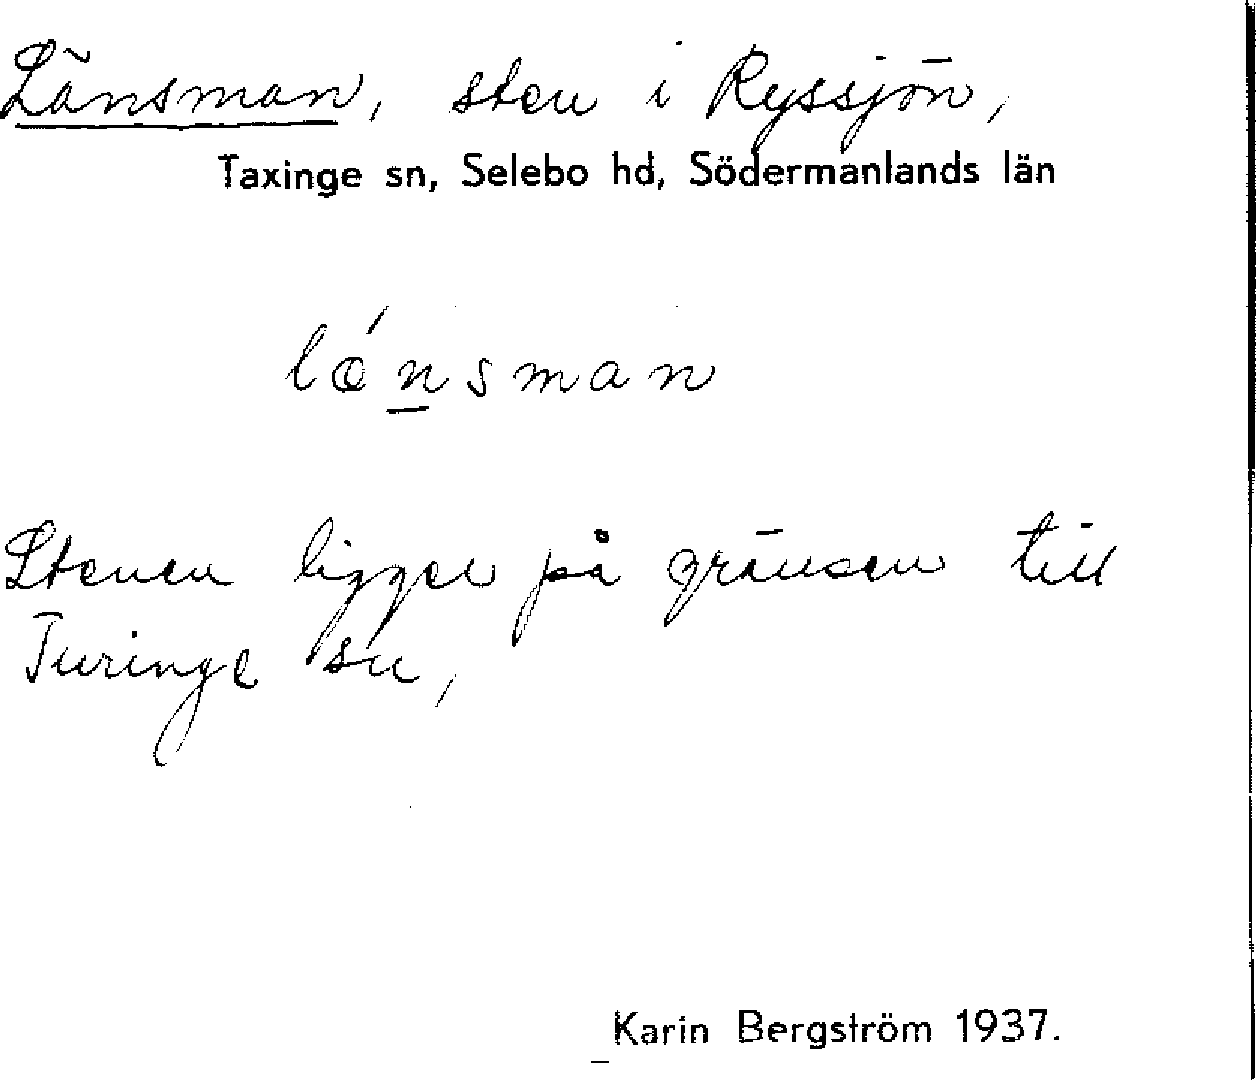 Länsman, sten i Ryssjön,
Taxinge sn, Selebo hd, Södermanlands län
lǽnsman
Stenen ligger på gränsen till
Turinge sn,
Karin Bergström 1937.